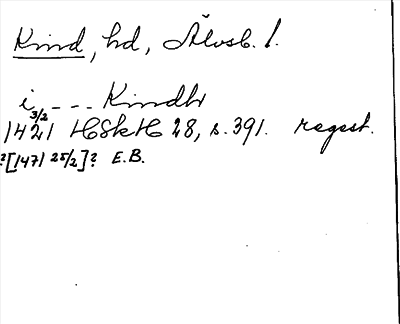 Kind, hd, Älvsb. l.
i, --- Kindh
3/2
1421 HSkH 28, s. 391. regest.
?[1471 25/2]? E.B.